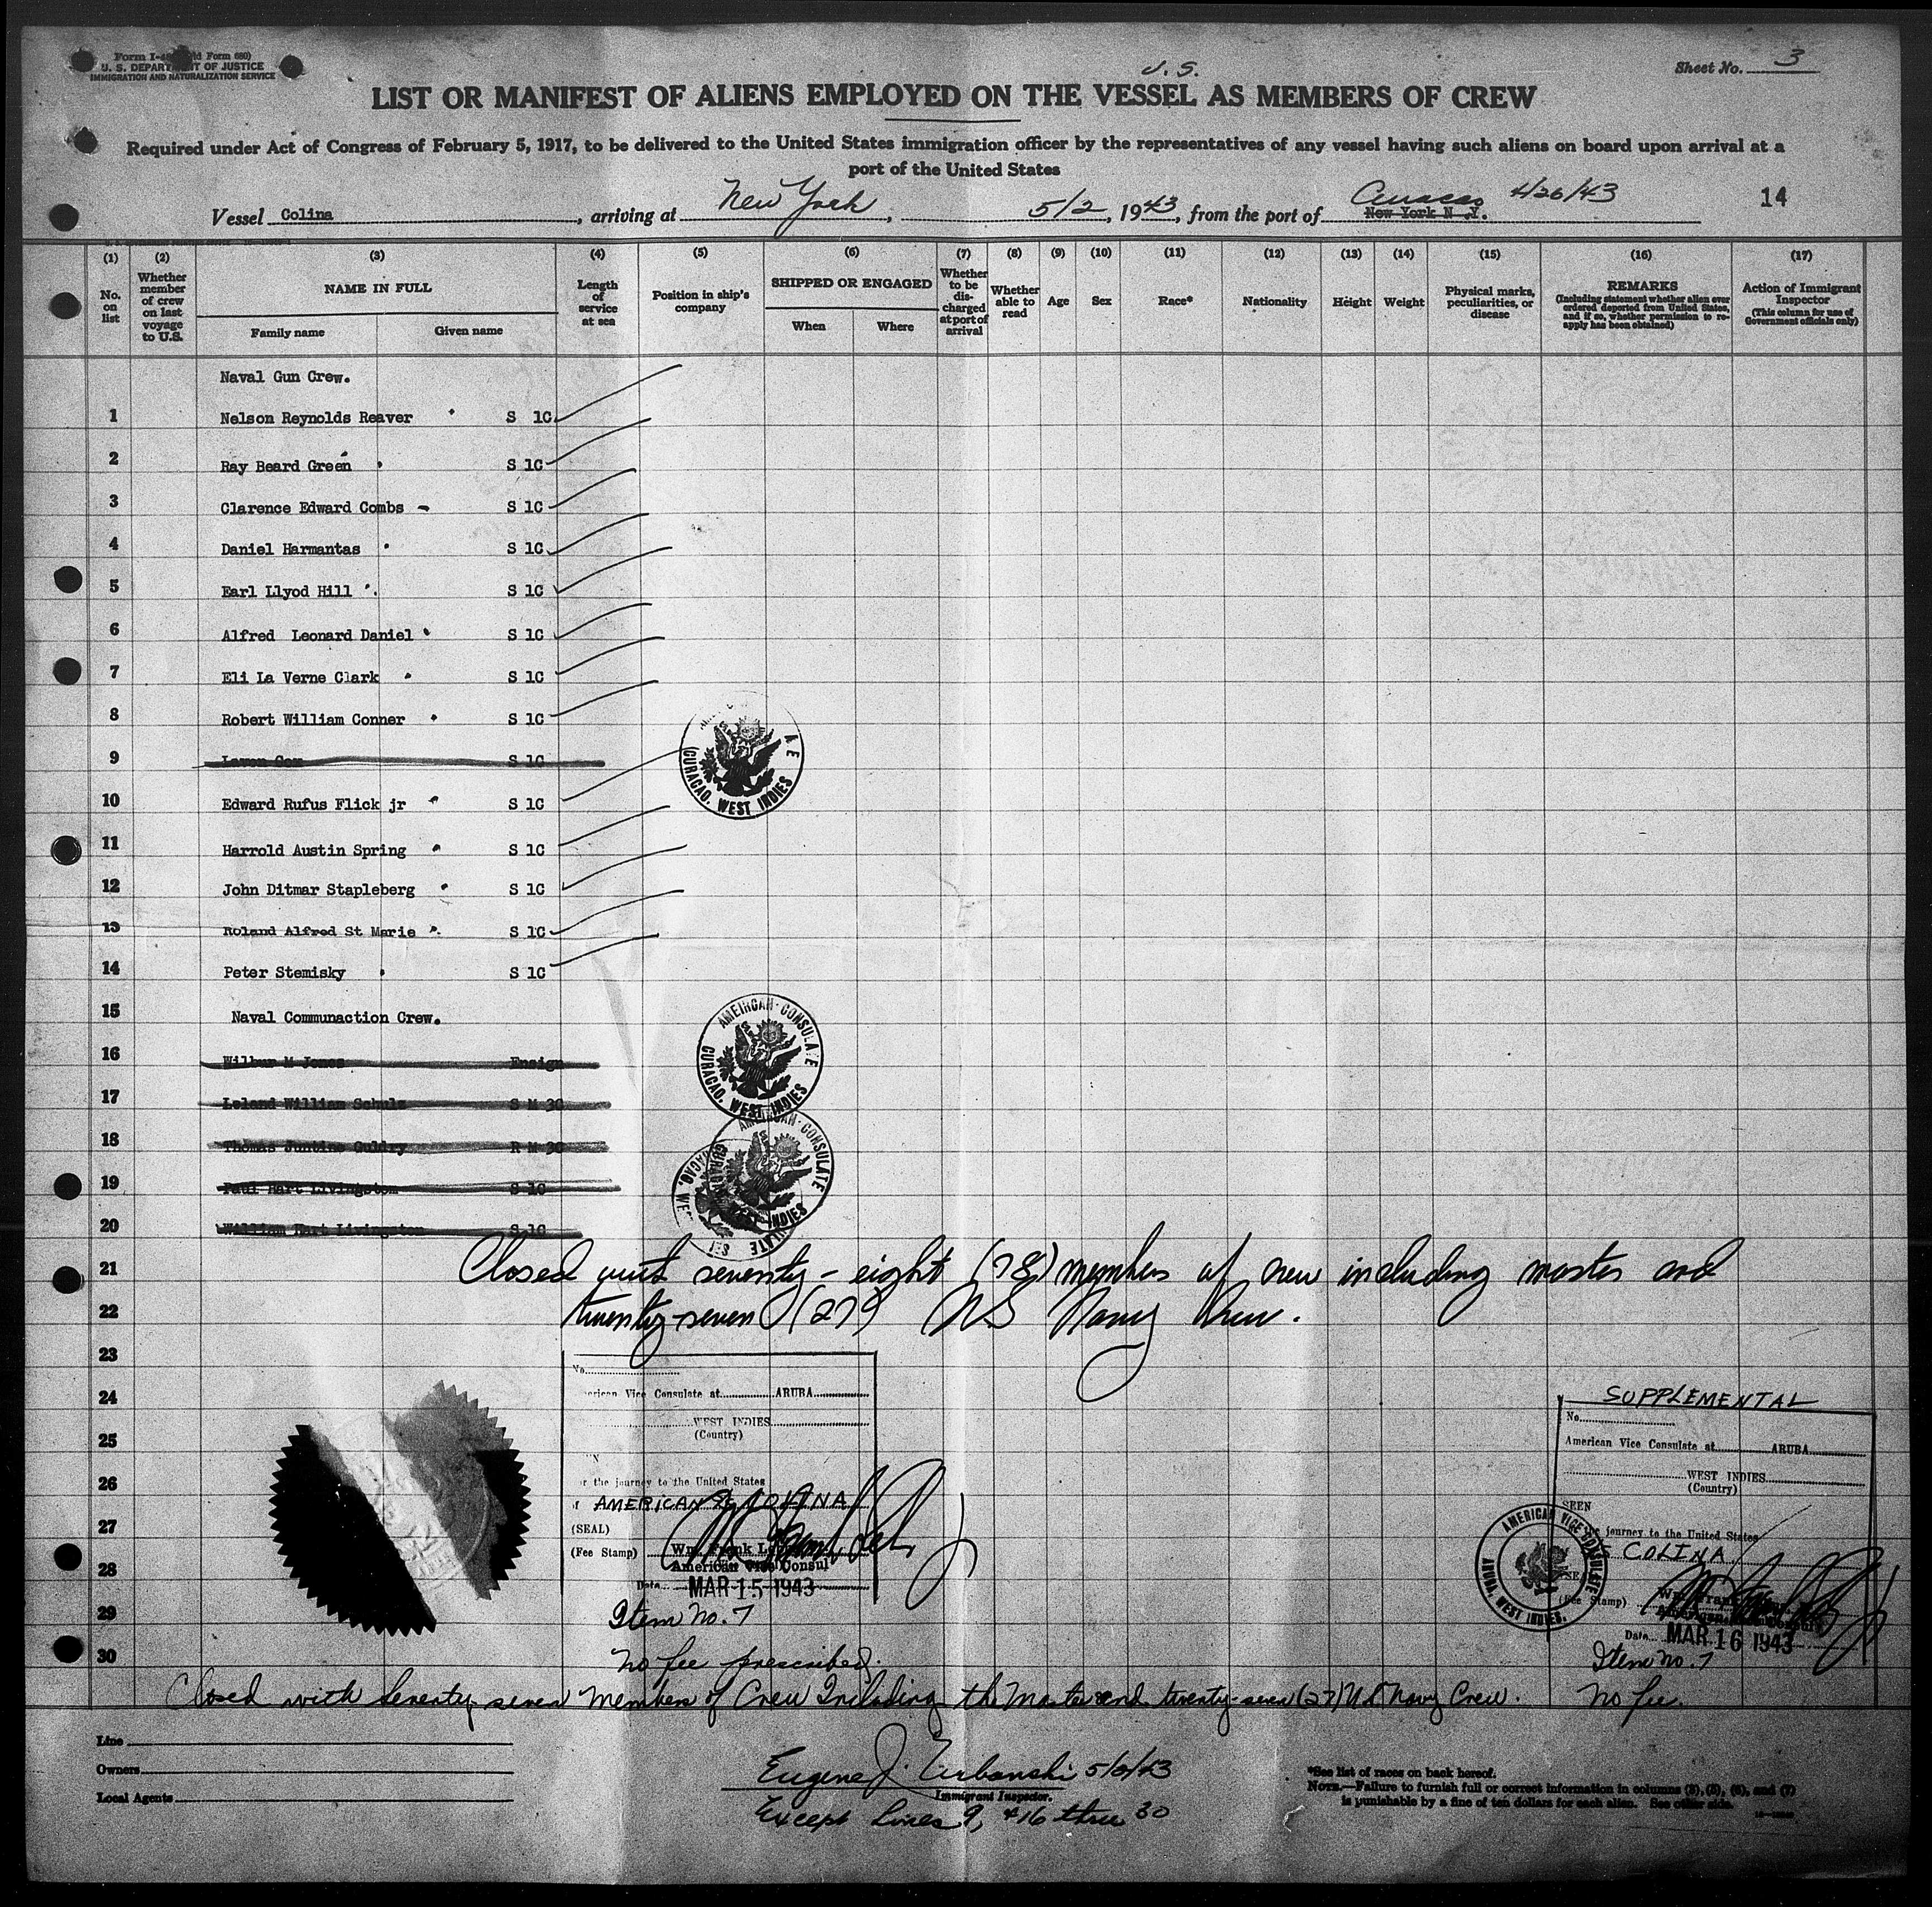 Form I-4 (Old Form 680)
U. S. DEPARTMENT OF JUSTICE
IMMIGRATION AND NATURALIZATION SERVICE
Sheet No. 3
U. S.
LIST OR MANIFEST OF ALIENS EMPLOYED ON THE VESSEL AS MEMBERS OF CREW
Required under Act of Congress of February 5, 1917, to be delivered to the United States immigration officer by the representatives of any vessel having such aliens on board upon arrival at a
port of the United States
Vessel Colina, arriving at New York, 5/2, 1943, from the port of Curacao 4/26/43
New York N.Y.
14
(1) No. on list
(2) Whether member of crew on last voyage to U.S.
(3) NAME IN FULL
Family name Given name
(4) Length of service at sea
(5) Position in ship's company
(6) SHIPPED OR ENGAGED
When Where
(7) Whether to be discharged at port of arrival
(8) Whether able to read
(9) Age
(10) Sex
(11) Race*
(12) Nationality
(13) Height
(14) Weight
(15) Physical marks, peculiarities, or disease
(16) REMARKS (Including statement whether alien ever ordered deported from United States, and if so, whether permission to reapply has been obtained)
(17) Action of Immigrant Inspector (This column for use of Government officials only)
Naval Gun Crew.
1 Nelson Reynolds Reaver S 1C
2 Ray Beard Green S 1C
3 Clarence Edward Combs S 1C
4 Daniel Harmantas S 1C
5 Earl Llyod Hill S 1C
6 Alfred Leonard Daniel S 1C
7 Eli La Verne Clark S 1C
8 Robert William Conner S 1C
9 Cox S 1C
10 Edward Rufus Flick jr S 1C
11 Harrold Austin Spring S 1C
12 John Ditmar Stapleberg S 1C
13 Roland Alfred St Marie S 1C
14 Peter Stemisky S 1C
15 Naval Communaction Crew.
16 Wilbur M Jones Ensign
17 Leland William Schulz S M 3C
18 Thomas Guldry R M 3C
19 Paul Hart Livingston S 1C
20 William Hart Livingston S 1C
CURACAO, WEST INDIES
AMERICAN CONSULATE
CURACAO, WEST INDIES
AMERICAN CONSULATE
CURACAO, WEST INDIES
21 Closed with seventy-eight (78) members of crew including master and
22 twenty-seven (27) US Navy Crew.
23
24
25
26
27
28
29
30
No.
American Vice Consulate at ARUBA
WEST INDIES
(Country)
For the journey to the United States
AMERICAN SS COLINA
(SEAL)
(Fee Stamp)
Wm. Frank
American Vice Consul
Date MAR 15 1943
Item No. 7
No fee prescribed.
SUPPLEMENTAL
No.
American Vice Consulate at ARUBA
WEST INDIES
(Country)
SEEN
journey to the United States
COLINA
(Fee Stamp)
AMERICAN VICE CONSULATE
ARUBA, WEST INDIES.
Date MAR 16 1943
Item No. 7
No fee.
Closed with Seventy seven Members of Crew Including the Master and twenty-seven (27) U.S. Navy Crew.
Line
Owners
Local Agents
Eugene J. Urbanski
Immigrant Inspector.
Except Lines 9, +16 thru 30
*See list of races on back hereof.
NOTE.—Failure to furnish full or correct information in columns (3), (5), (6), and (7)
is punishable by a fine of ten dollars for each alien. See other side.